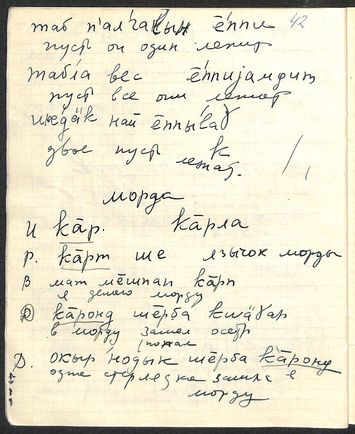 42
таб п'алг'авын ё̄ппи
пусть он один лежит
табла вес ё̄ппиjамдит
пусть все они лежат
инед'ӓк най ё̄ппыва̄ɣ
двое пусть лежат.
морда
И ка̄р. ка̄рла
Р. ка̄рт ше язычок морды
В мат мēшпап ка̄рп
я делаю морду
Д ка̄ронд шēрба квӓɣар
в морду зашел осетр
попал
Д. окыр 'нодык шēрба ка̄ронд
одна стерлядка зашла в
морду